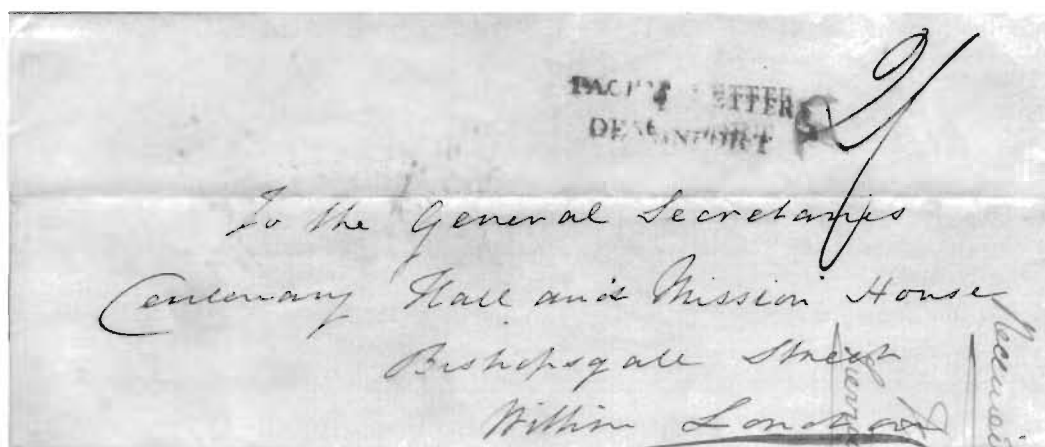 PACKET LETTER
DEVONPORT
2/
To the General Secretaries
Centenary Hall and Mission House
Bishopsgate Street
Within London